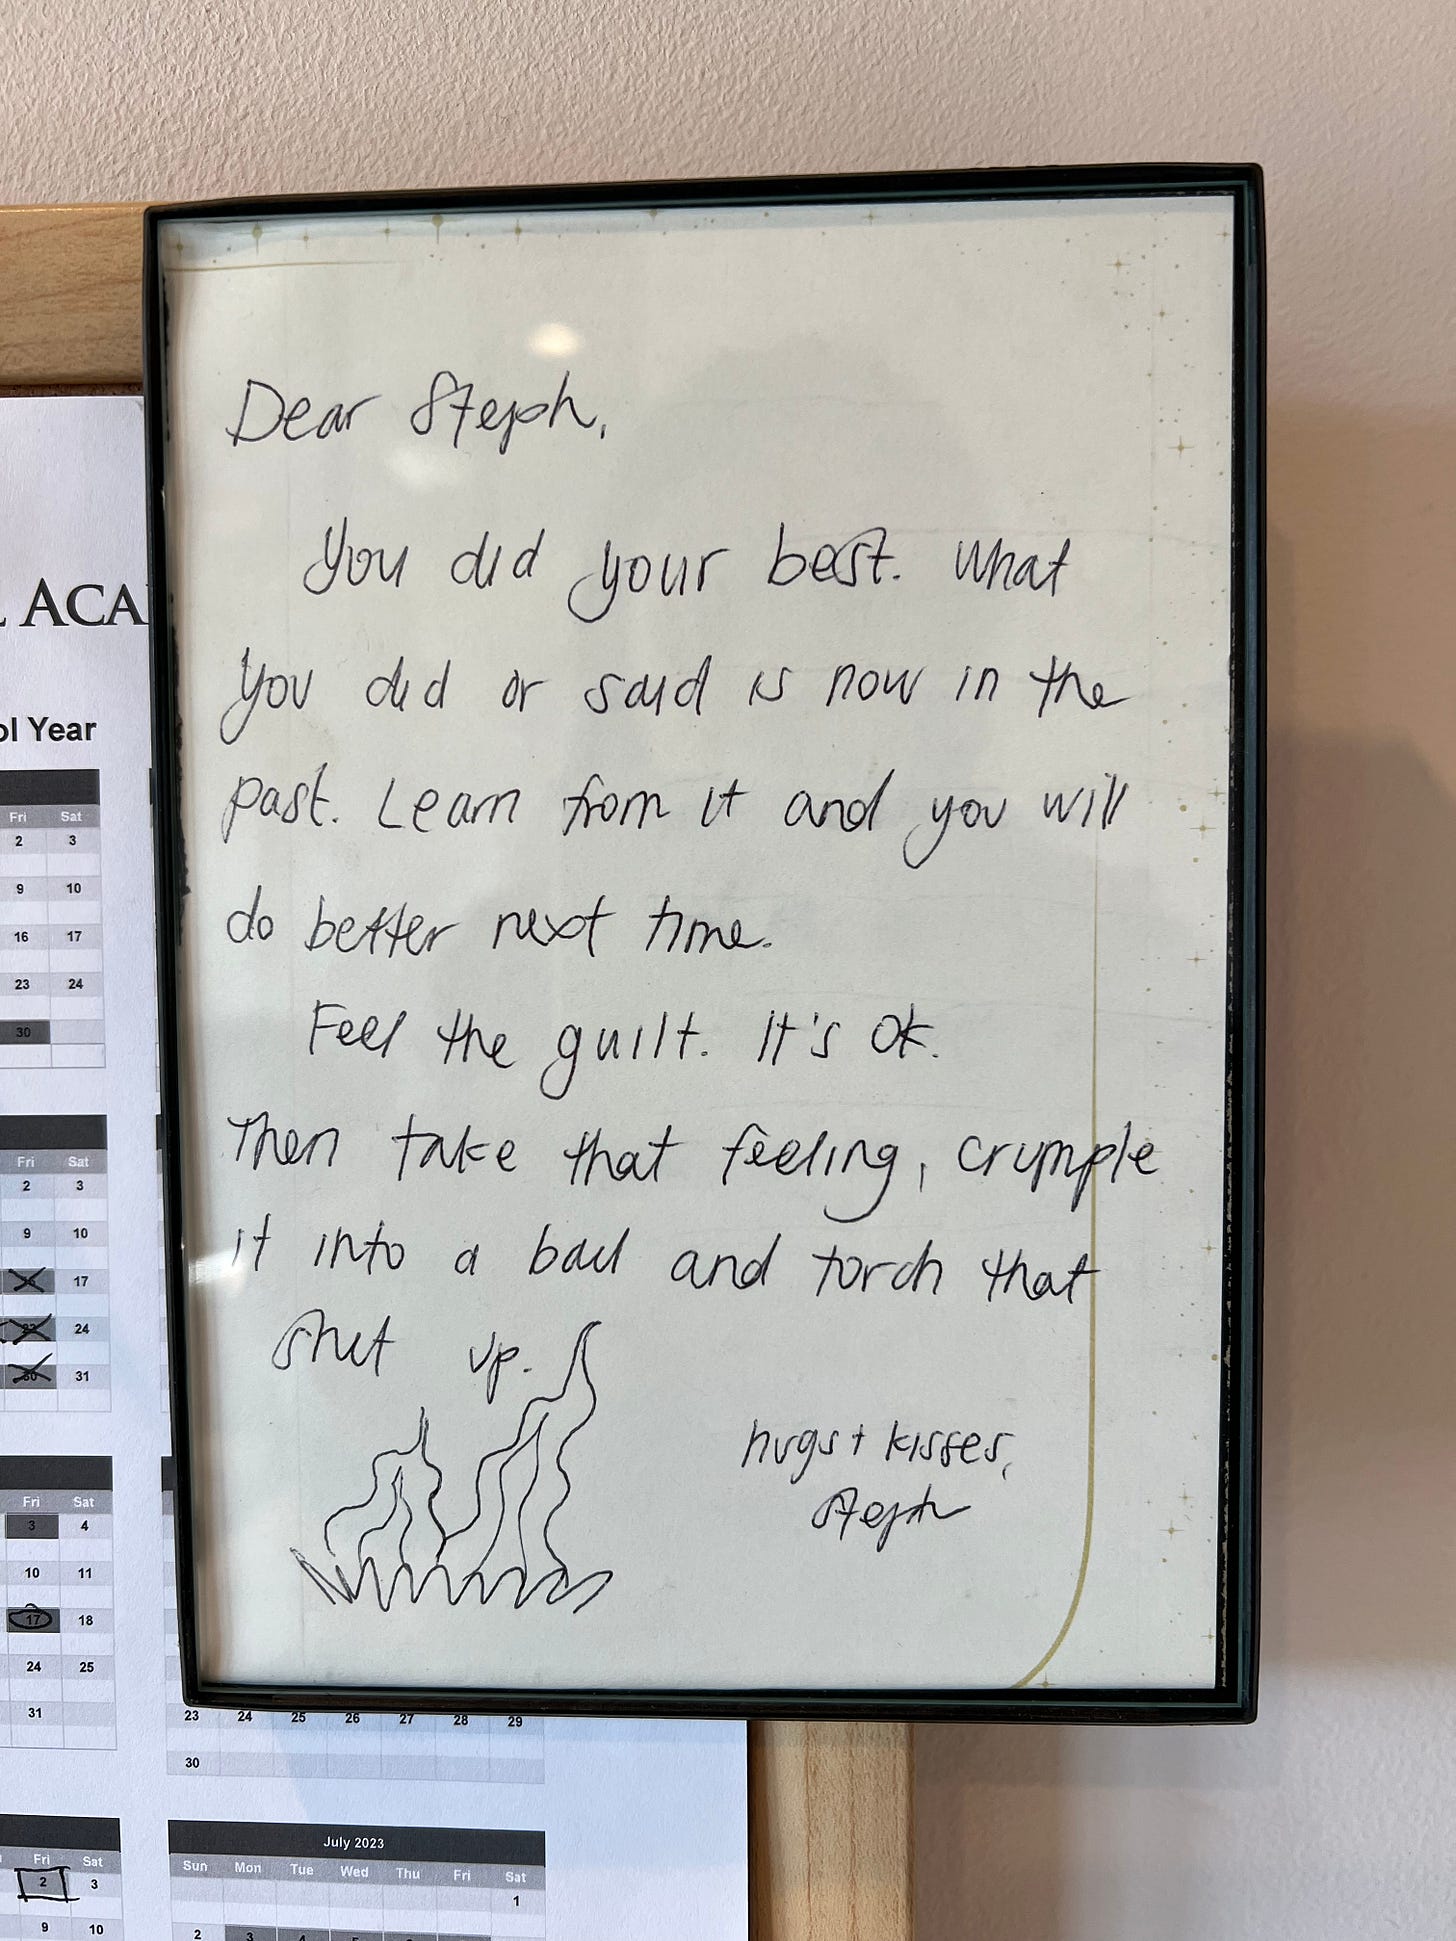 Dear Steph,
You did your best. What
you did or said is now in the
past. Learn from it and you will
do better next time.
Feel the guilt. It's ok.
Then take that feeling, crumple
it into a ball and torch that
shit up.
hugs + kisses,
Steph
ACA
ol Year
Fri Sat
2 3
9 10
16 17
23 24
30
Fri Sat
2 3
9 10
17
24
30 31
Fri Sat
3 4
10 11
17 18
24 25
31
23 24 25 26 27 28 29
30
Fri Sat
2 3
9 10
July 2023
Sun Mon Tue Wed Thu Fri Sat
1
2 3 4 5 6